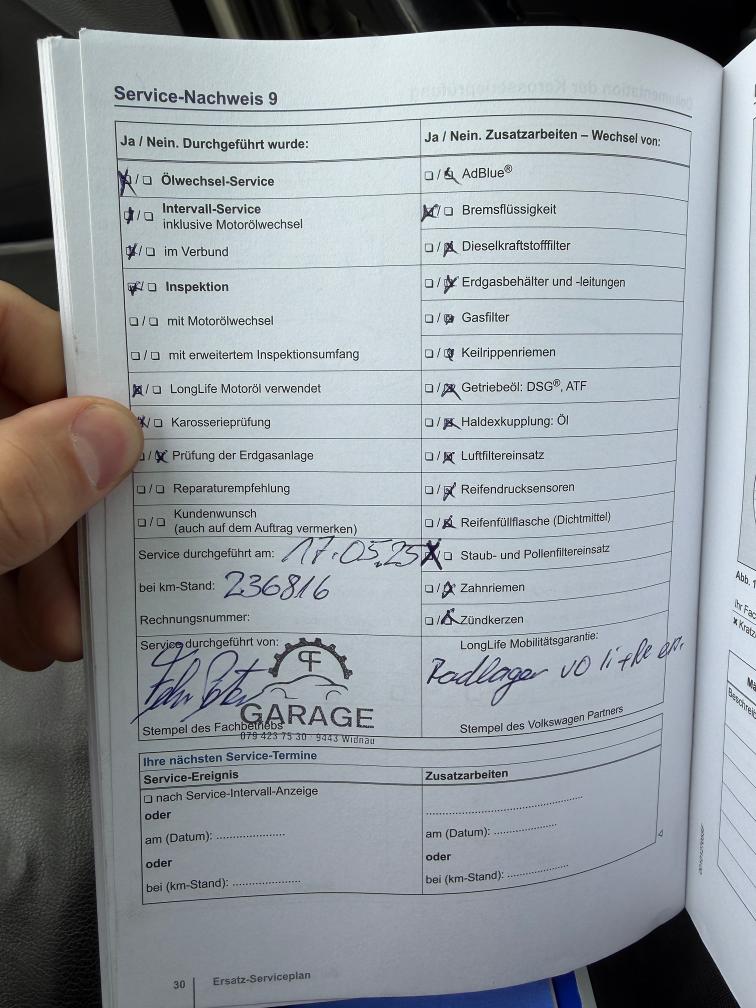 Service-Nachweis 9
Ja / Nein. Durchgeführt wurde:
☒/☐ Ölwechsel-Service
☒/☐ Intervall-Service
inklusive Motorölwechsel
☒/☐ im Verbund
☒/☐ Inspektion
☐/☐ mit Motorölwechsel
☐/☐ mit erweitertem Inspektionsumfang
☒/☐ LongLife Motoröl verwendet
☒/☐ Karosserieprüfung
☐/☒ Prüfung der Erdgasanlage
☐/☐ Reparaturempfehlung
☐/☐ Kundenwunsch
(auch auf dem Auftrag vermerken)
Service durchgeführt am: 17.05.25
bei km-Stand: 236816
Rechnungsnummer:
Service durchgeführt von:
GARAGE
079 423 75 30 · 9443 Widnau
Stempel des Fachbetriebs
Ja / Nein. Zusatzarbeiten – Wechsel von:
☐/☒ AdBlue®
☒/☐ Bremsflüssigkeit
☐/☒ Dieselkraftstofffilter
☐/☒ Erdgasbehälter und -leitungen
☐/☒ Gasfilter
☐/☒ Keilrippenriemen
☐/☒ Getriebeöl: DSG®, ATF
☐/☒ Haldexkupplung: Öl
☐/☒ Luftfiltereinsatz
☐/☒ Reifendrucksensoren
☐/☒ Reifenfüllflasche (Dichtmittel)
☒/☐ Staub- und Pollenfiltereinsatz
☐/☒ Zahnriemen
☐/☒ Zündkerzen
LongLife Mobilitätsgarantie:
Radlager VO li + Re er.
Stempel des Volkswagen Partners
Ihre nächsten Service-Termine
Service-Ereignis
☐ nach Service-Intervall-Anzeige
oder
am (Datum): ....................
oder
bei (km-Stand): ....................
Zusatzarbeiten
..............................................
am (Datum): ....................
oder
bei (km-Stand): ....................
30 Ersatz-Serviceplan
Abb. 1
Ihr Fac
x Kratz